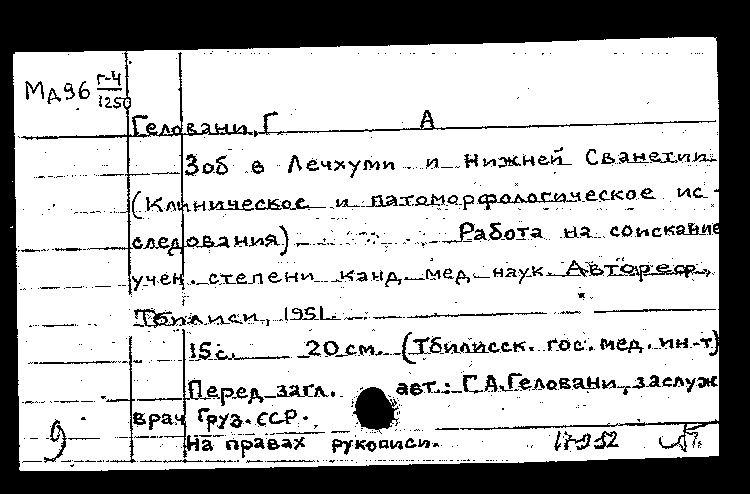 Мд96 Г-4
1250
Геловани, Г А
Зоб в Лечхуми и Нижней Сванетии
(Клиническое и патоморфологическое ис-
следования) Работа на соискание
учен. степени канд. мед. наук. Автореф.,
Тбилиси, 1951.
15 с. 20 см. (Тбилисск. гос. мед. ин-т)
Перед загл. авт.: Г.А. Геловани, заслуж
врач Груз. ССР.
На правах рукописи.
9